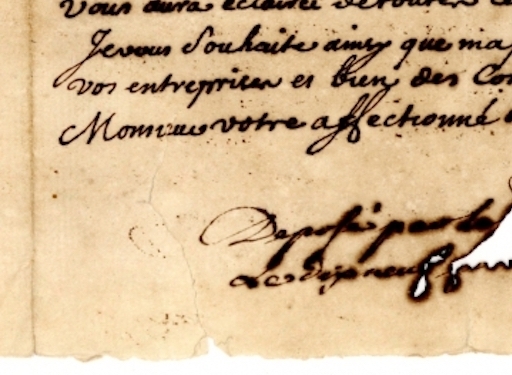 vous aura éclairée de toutes
Je vous Souhaite ainsy que ma
vos entreprises et bien des
Monsieur votre affectionné
Deposé par